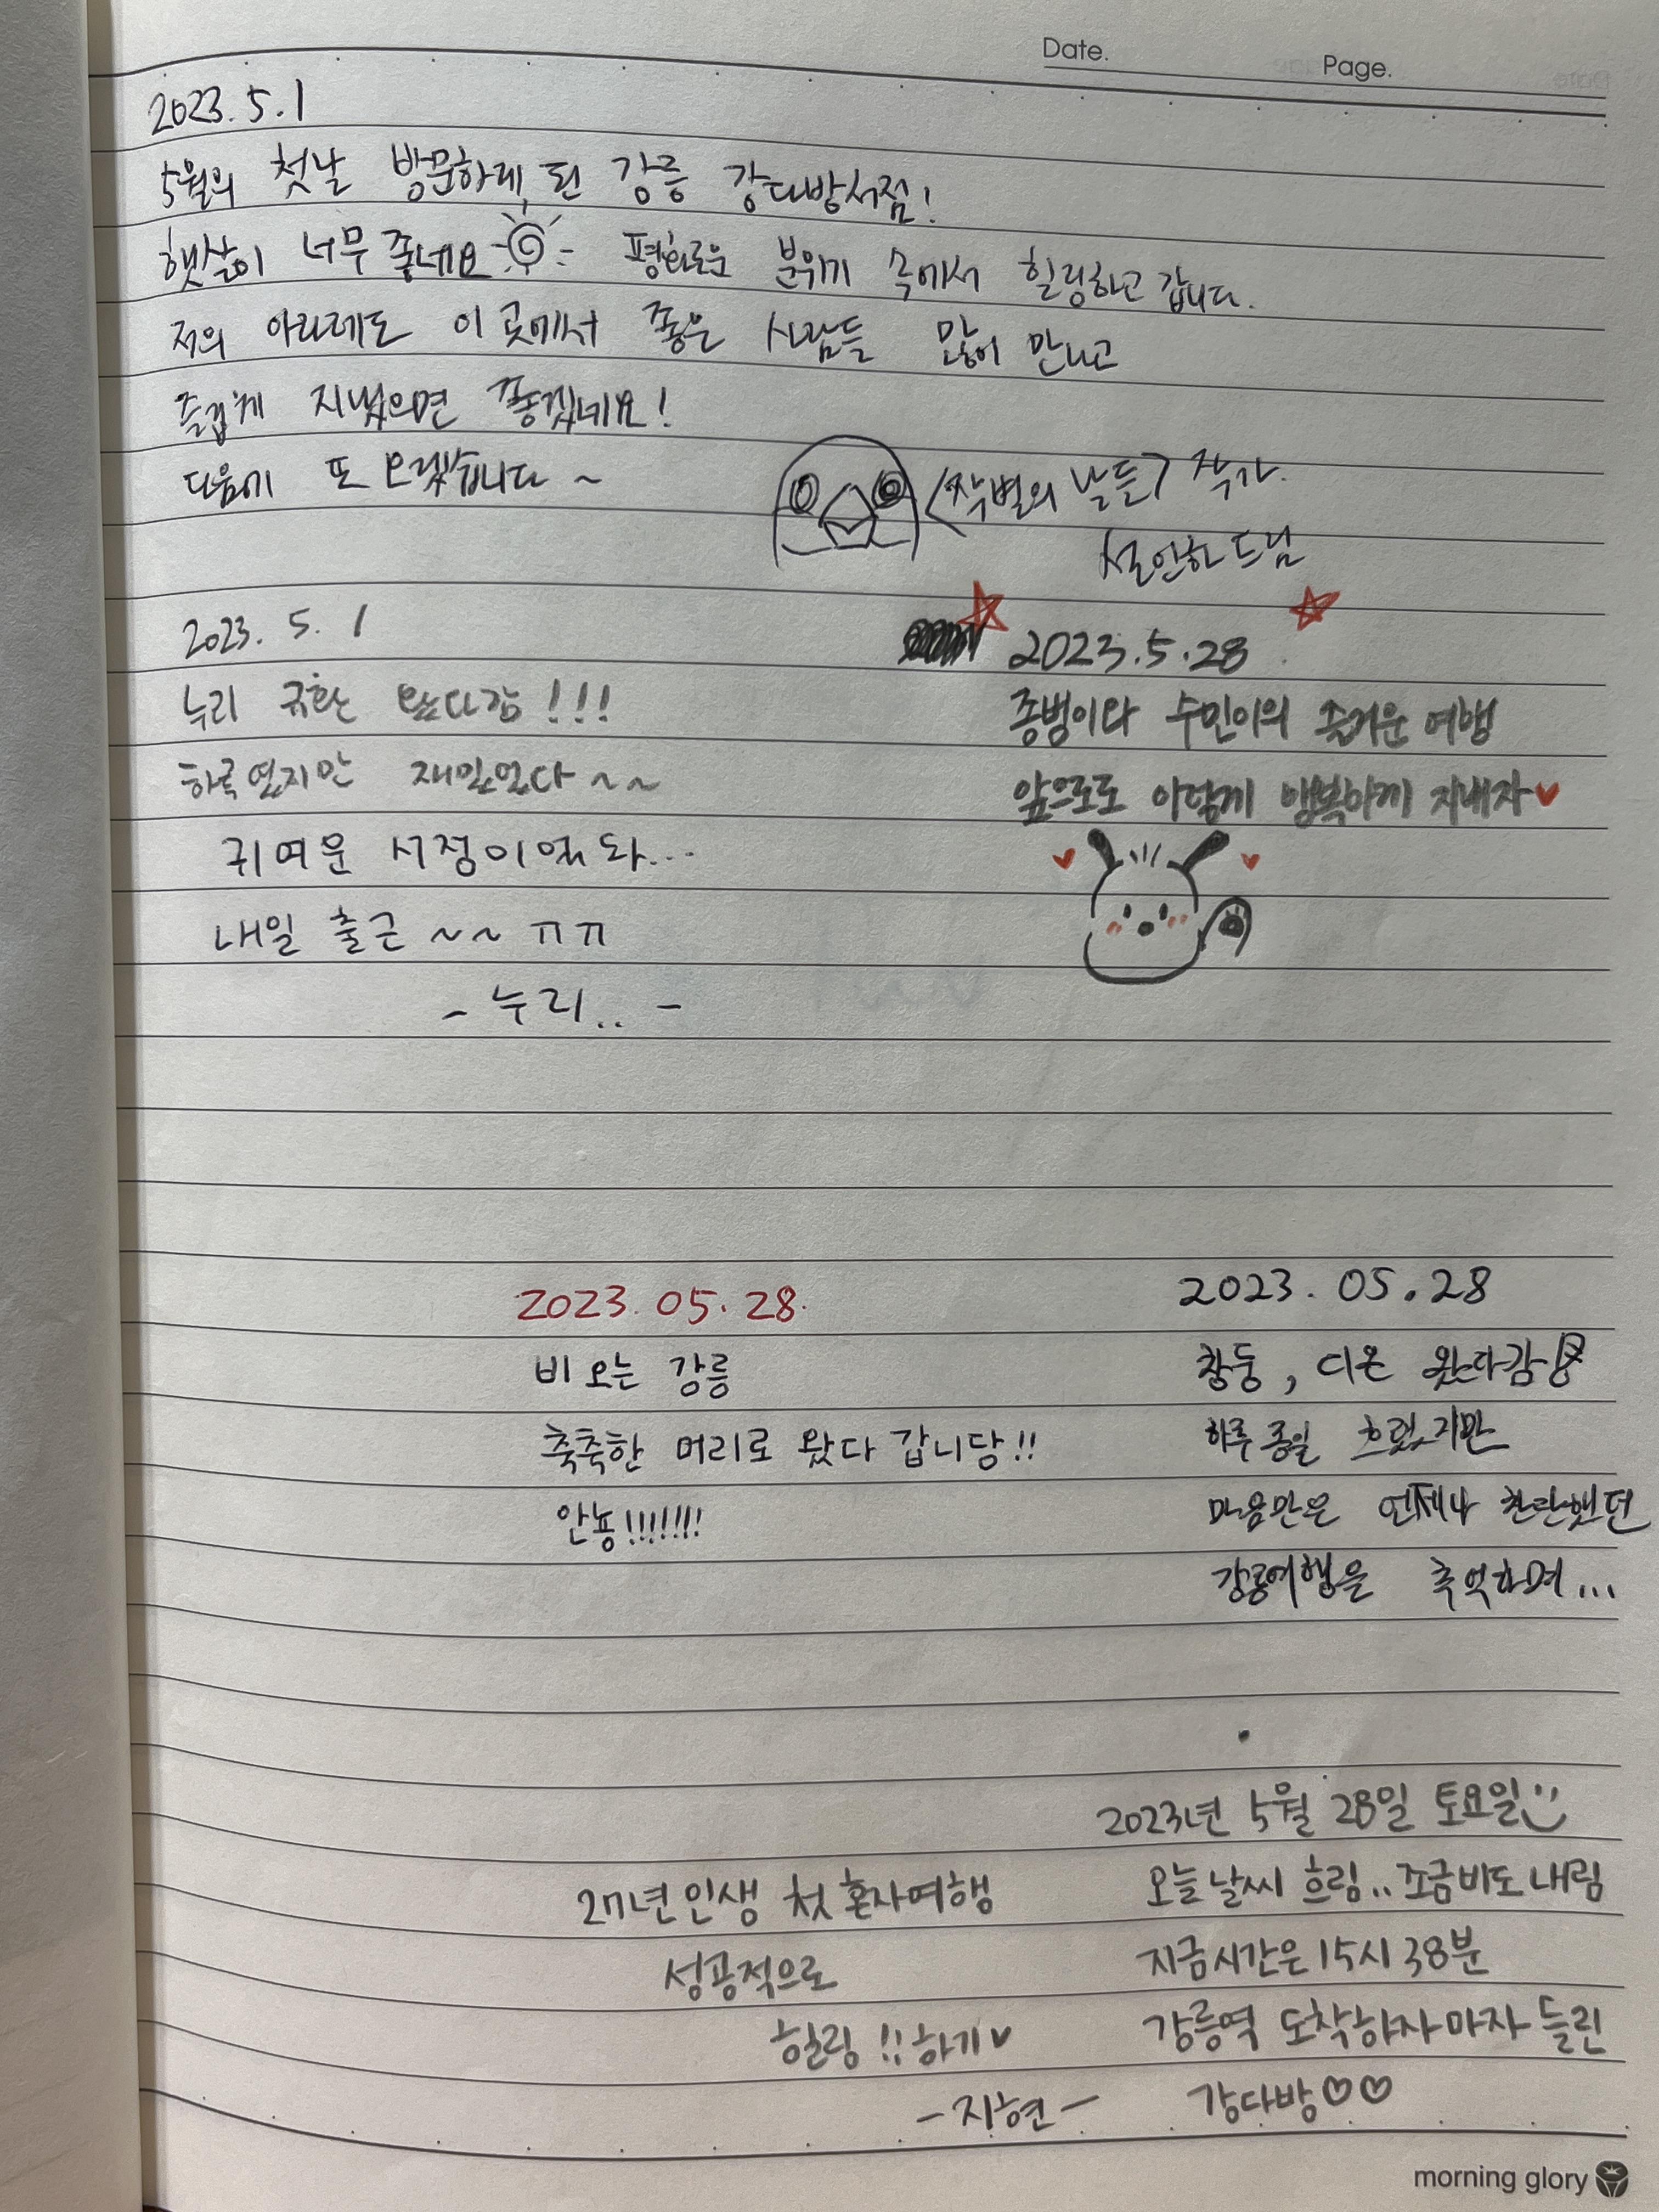 Date.
Page.
2023. 5. 1
5월의 첫날 방문하게 된 강릉 강다방서점!
햇살이 너무 좋네요 평화로운 분위기 속에서 힐링하고 갑니다.
저의 아리레도 이 곳에서 좋은 사람들 많이 만나고
즐겁게 지냈으면 좋겠네요!
다음에 또 오겠습니다 ~
<작별의 날들> 작가.
설인하 드림
2023. 5. 1
누리 규환 왔다감!!!
하루였지만 재밌었다 ~~
귀여운 서점이었다...
내일 출근 ~~ ㅠㅠ
- 누리.. -
2023.5.28
종범이와 수민이의 즐거운 여행
앞으로도 이렇게 행복하게 지내자♥
2023. 05. 28.
비 오는 강릉
축축한 머리로 왔다 갑니당!!
안뇽!!!!!!!
2023. 05. 28
창둥, 디온 왔다감
하루 종일 흐렸지만
마음만은 언제나 찬란했던
강릉여행을 추억하며...
27년 인생 첫 혼자여행
성공적으로
힐링!! 하기♥
- 지현 -
2023년 5월 28일 토요일
오늘 날씨 흐림.. 조금 비도 내림
지금 시간은 15시 38분
강릉역 도착하자마자 들린
강다방♡♡
morning glory